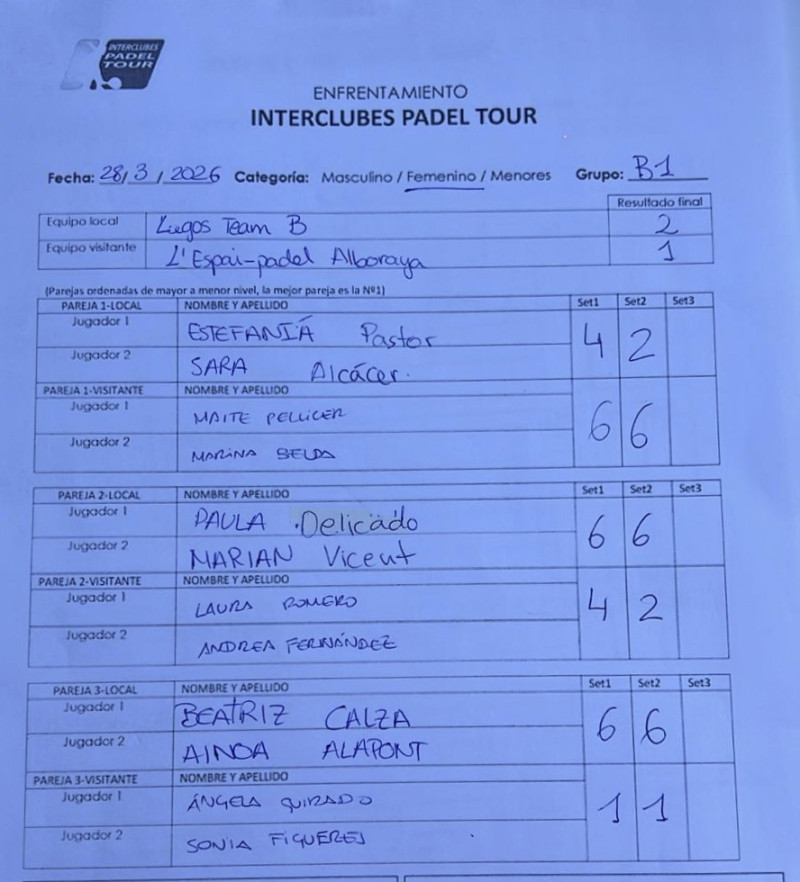 INTERCLUBES
PADEL
TOUR
ENFRENTAMIENTO
INTERCLUBES PADEL TOUR
Fecha: 28/3/2026 Categoría: Masculino / Femenino / Menores Grupo: B1
Resultado final
Equipo local Lugos Team B 2
Equipo visitante L'Espai-padel Alboraya 1
(Parejas ordenadas de mayor a menor nivel, la mejor pareja es la Nº1)
PAREJA 1-LOCAL NOMBRE Y APELLIDO Set1 Set2 Set3
Jugador 1 ESTEFANÍA Pastor 4 2
Jugador 2 SARA Alcácer.
PAREJA 1-VISITANTE NOMBRE Y APELLIDO
Jugador 1 MAITE PELLICER 6 6
Jugador 2 MARINA BELDA
PAREJA 2-LOCAL NOMBRE Y APELLIDO Set1 Set2 Set3
Jugador 1 PAULA Delicado 6 6
Jugador 2 MARIAN Vicent
PAREJA 2-VISITANTE NOMBRE Y APELLIDO
Jugador 1 LAURA ROMERO 4 2
Jugador 2 ANDREA FERNÁNDEZ
PAREJA 3-LOCAL NOMBRE Y APELLIDO Set1 Set2 Set3
Jugador 1 BEATRIZ CALZA 6 6
Jugador 2 AINOA ALAPONT
PAREJA 3-VISITANTE NOMBRE Y APELLIDO
Jugador 1 ÁNGELA QUIRADO 1 1
Jugador 2 SONIA FIGUERES